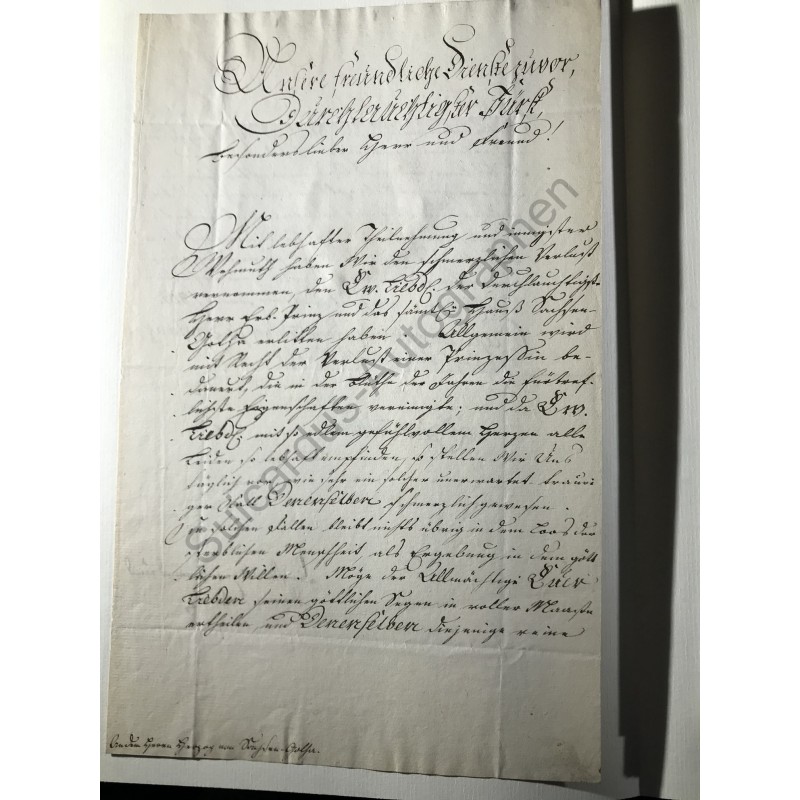 Unsere freundliche Dienste zuvor,
Durchlauchtigster Fürst,
besonders lieber Herr und Freund!
Mit lebhafter Theilnehmung und innigster
Wehmuth haben Wir den schmerzlichen Verlust
vernommen, den Ew. Liebd. der Durchlauchtigste
Herr Erb-Prinz und das sämtl. Hauß Sachsen-
Gotha erlitten haben. Allgemein wird
mit Recht der Verlust einer Prinzessin be-
dauert, die in der Blüthe der Jahre die fürtref-
lichste Eigenschaften vereinigte; und da Ew.
Liebd. mit so edlem gefühlvollem Herzen alle
Leiden so lebhaft empfinden, so stellen Wir Uns
täglich vor, wie sehr ein solcher unerwartet trauri-
ger Fall Denenselben schmerzlich gewesen.
In solchen Fällen bleibt nichts übrig in dem Loos der
sterblichen Menschheit als Ergebung in dem gött-
lichen Willen. Möge der Allmächtige Euer
Liebden seinen göttlichen Segen in voller Maaße
ertheilen und Denenselben diejenige reine
An den Herrn Herzog von Sachsen-Gotha.
Surcardus-Autographen